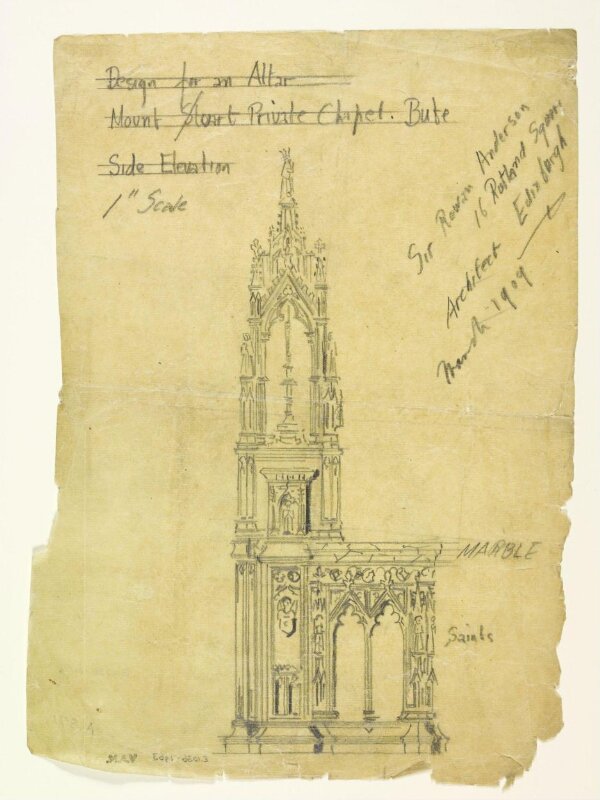 Design for an Altar
Mount Stuart Private Chapel. Bute
Side Elevation
1" Scale
Sir Rowan Anderson
16 Rutland Square
Architect Edinburgh
March 1909
MARBLE
Saints
E.1036-1963 V.&A.M.